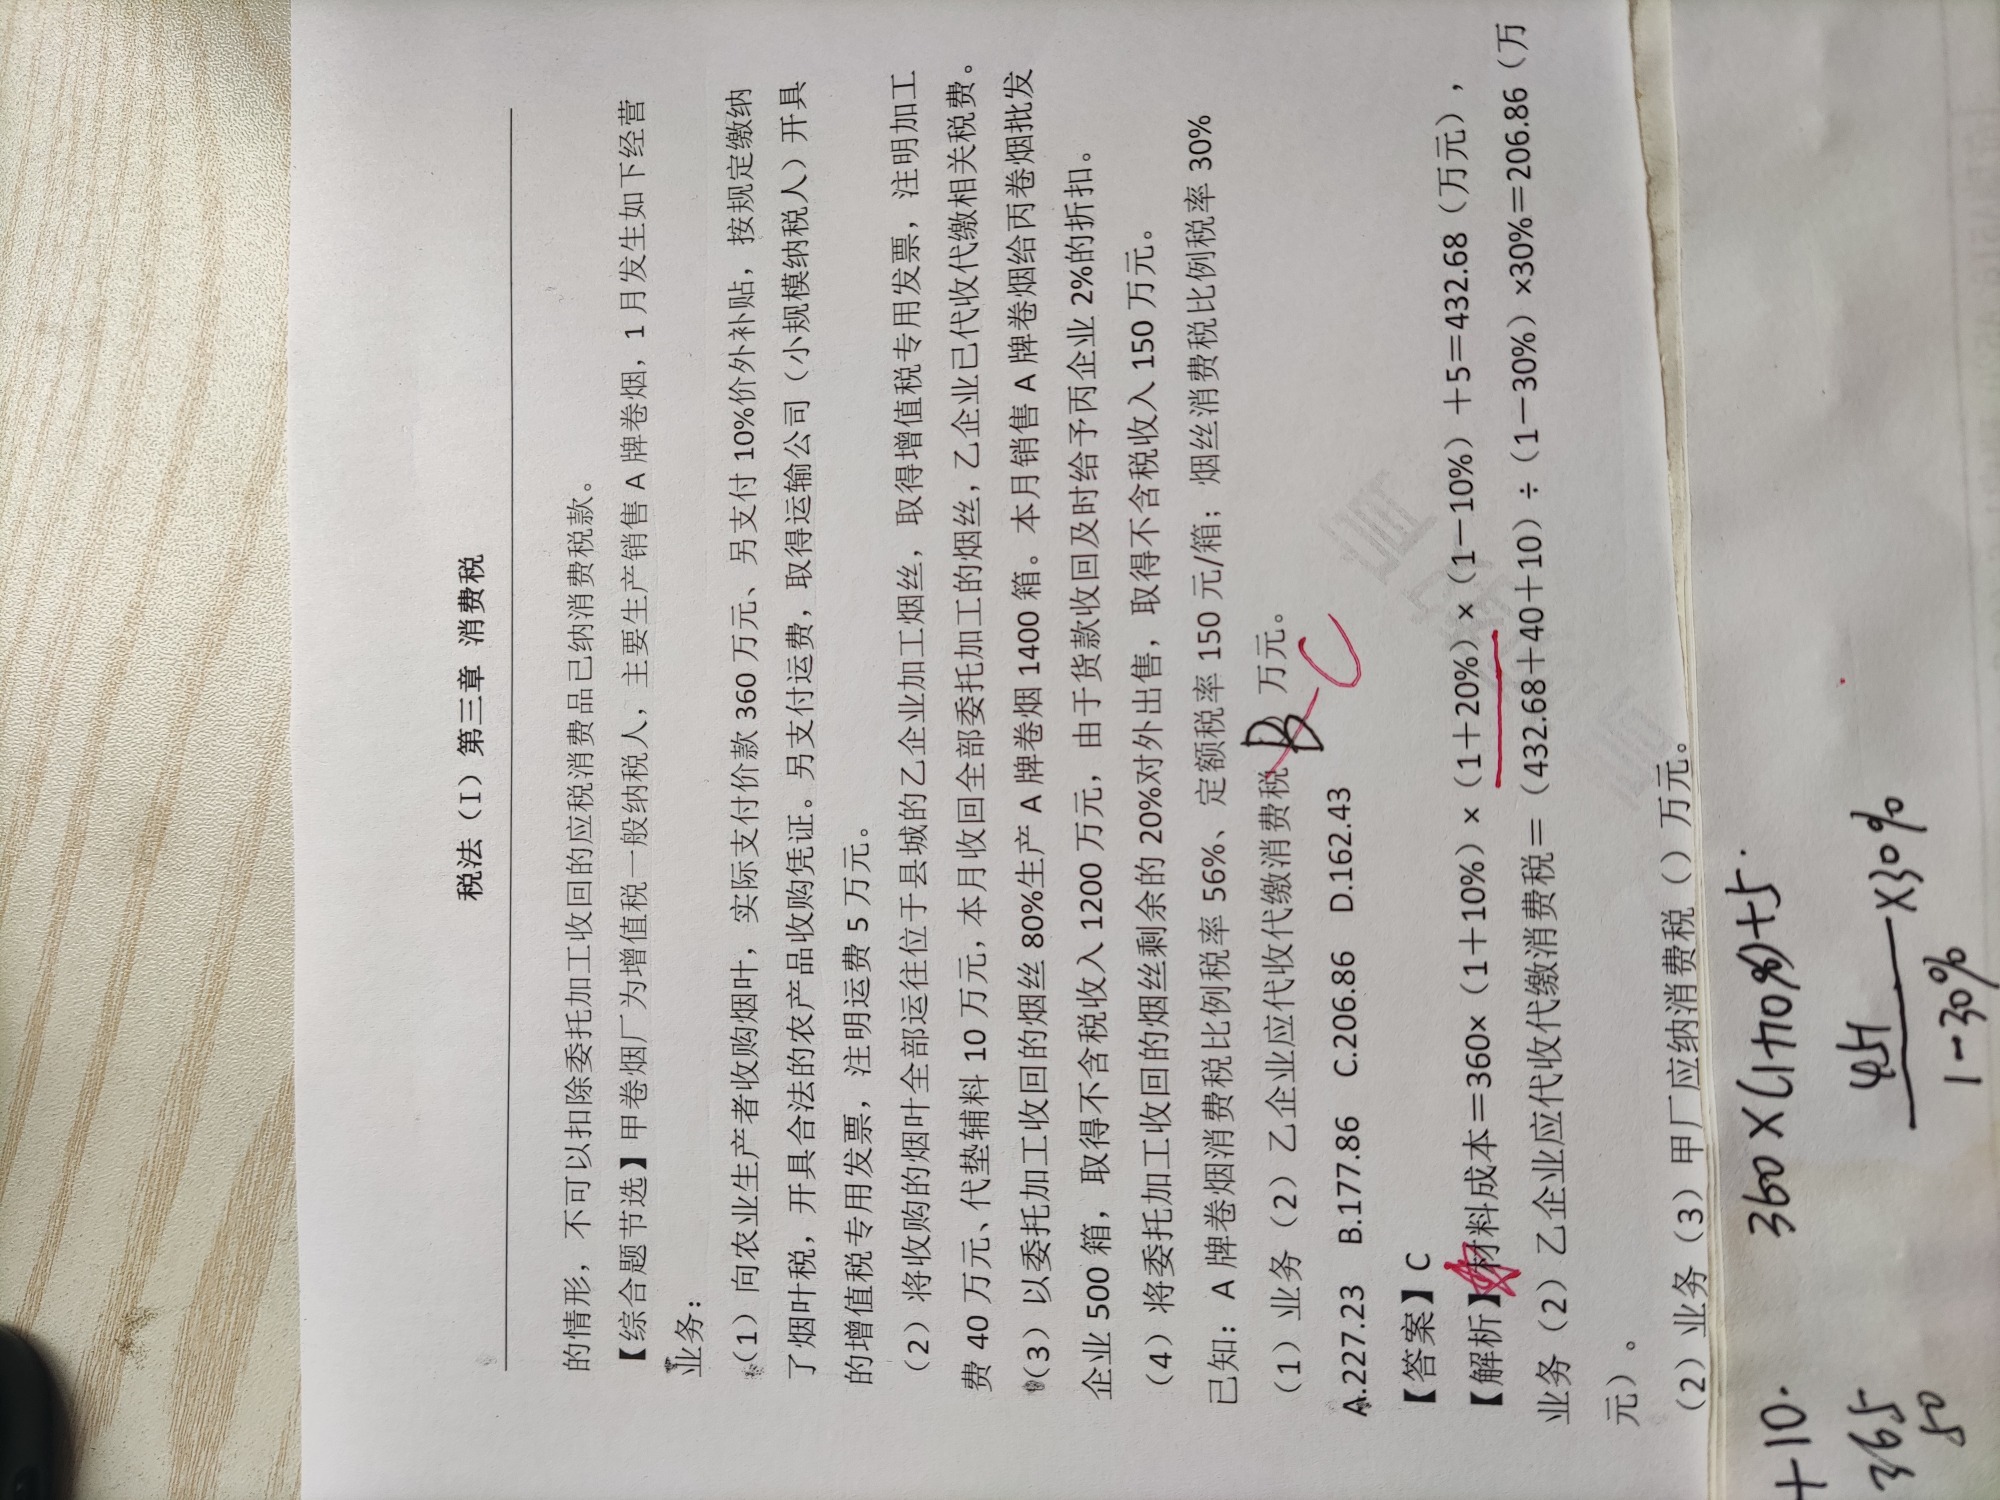 税法（I）第三章 消费税
的情形，不可以扣除委托加工收回的应税消费品已纳消费税税款。
【综合题节选】甲卷烟厂为增值税一般纳税人，主要生产销售 A 牌卷烟，1 月发生如下经营
业务：
（1）向农业生产者收购烟叶，实际支付价款 360 万元、另支付 10%价外补贴，按规定缴纳
了烟叶税，开具合法的农产品收购凭证。另支付运费，取得运输公司（小规模纳税人）开具
的增值税专用发票，注明运费 5 万元。
（2）将收购的烟叶全部运往位于县城的乙企业加工烟丝，取得增值税专用发票，注明加工
费 40 万元、代垫辅料 10 万元，本月收回全部委托加工的烟丝，乙企业已代收代缴相关税费。
（3）以委托加工收回的烟丝 80%生产 A 牌卷烟 1400 箱。本月销售 A 牌卷烟给丙卷烟批发
企业 500 箱，取得不含税收入 1200 万元，由于货款收回及时给予丙企业 2%的折扣。
（4）将委托加工收回的烟丝剩余的 20%对外出售，取得不含税收入 150 万元。
已知：A 牌卷烟消费税比例税率 56%、定额税率 150 元/箱；烟丝消费税比例税率 30%
（1）业务（2）乙企业应代收代缴消费税 万元。
B C
A.227.23 B.177.86 C.206.86 D.162.43
【答案】C
【解析】材料成本＝360×（1＋10%）×（1＋20%）×（1－10%）＋5＝432.68（万元），
业务（2）乙企业应代收代缴消费税＝（432.68＋40＋10）÷（1－30%）×30%＝206.86（万
元）。
（2）业务（3）甲厂应纳消费税（）万元。
360×(1+10%)+5.
×30%
1-30%
+10.
365
50